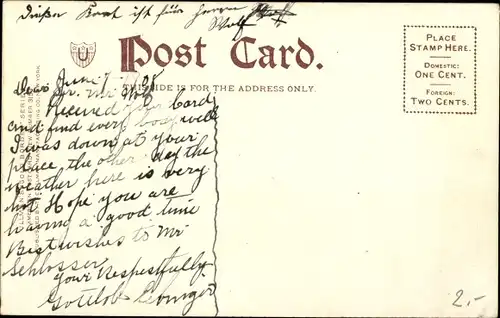 Dießer Kart ist für Herrn
Wolf
Post Card.
THIS SIDE IS FOR THE ADDRESS ONLY.
PLACE
STAMP HERE.
DOMESTIC:
ONE CENT.
FOREIGN:
TWO CENTS.
June 7
Dear Sir. Mr Wolf
Received your Card
and find every body well
I was down at your
place the other day the
weather here is very
hot Hope you are
having a good time
Best wishes to Mr
Schlosser
Your Respectfully
Gottlob
2.-